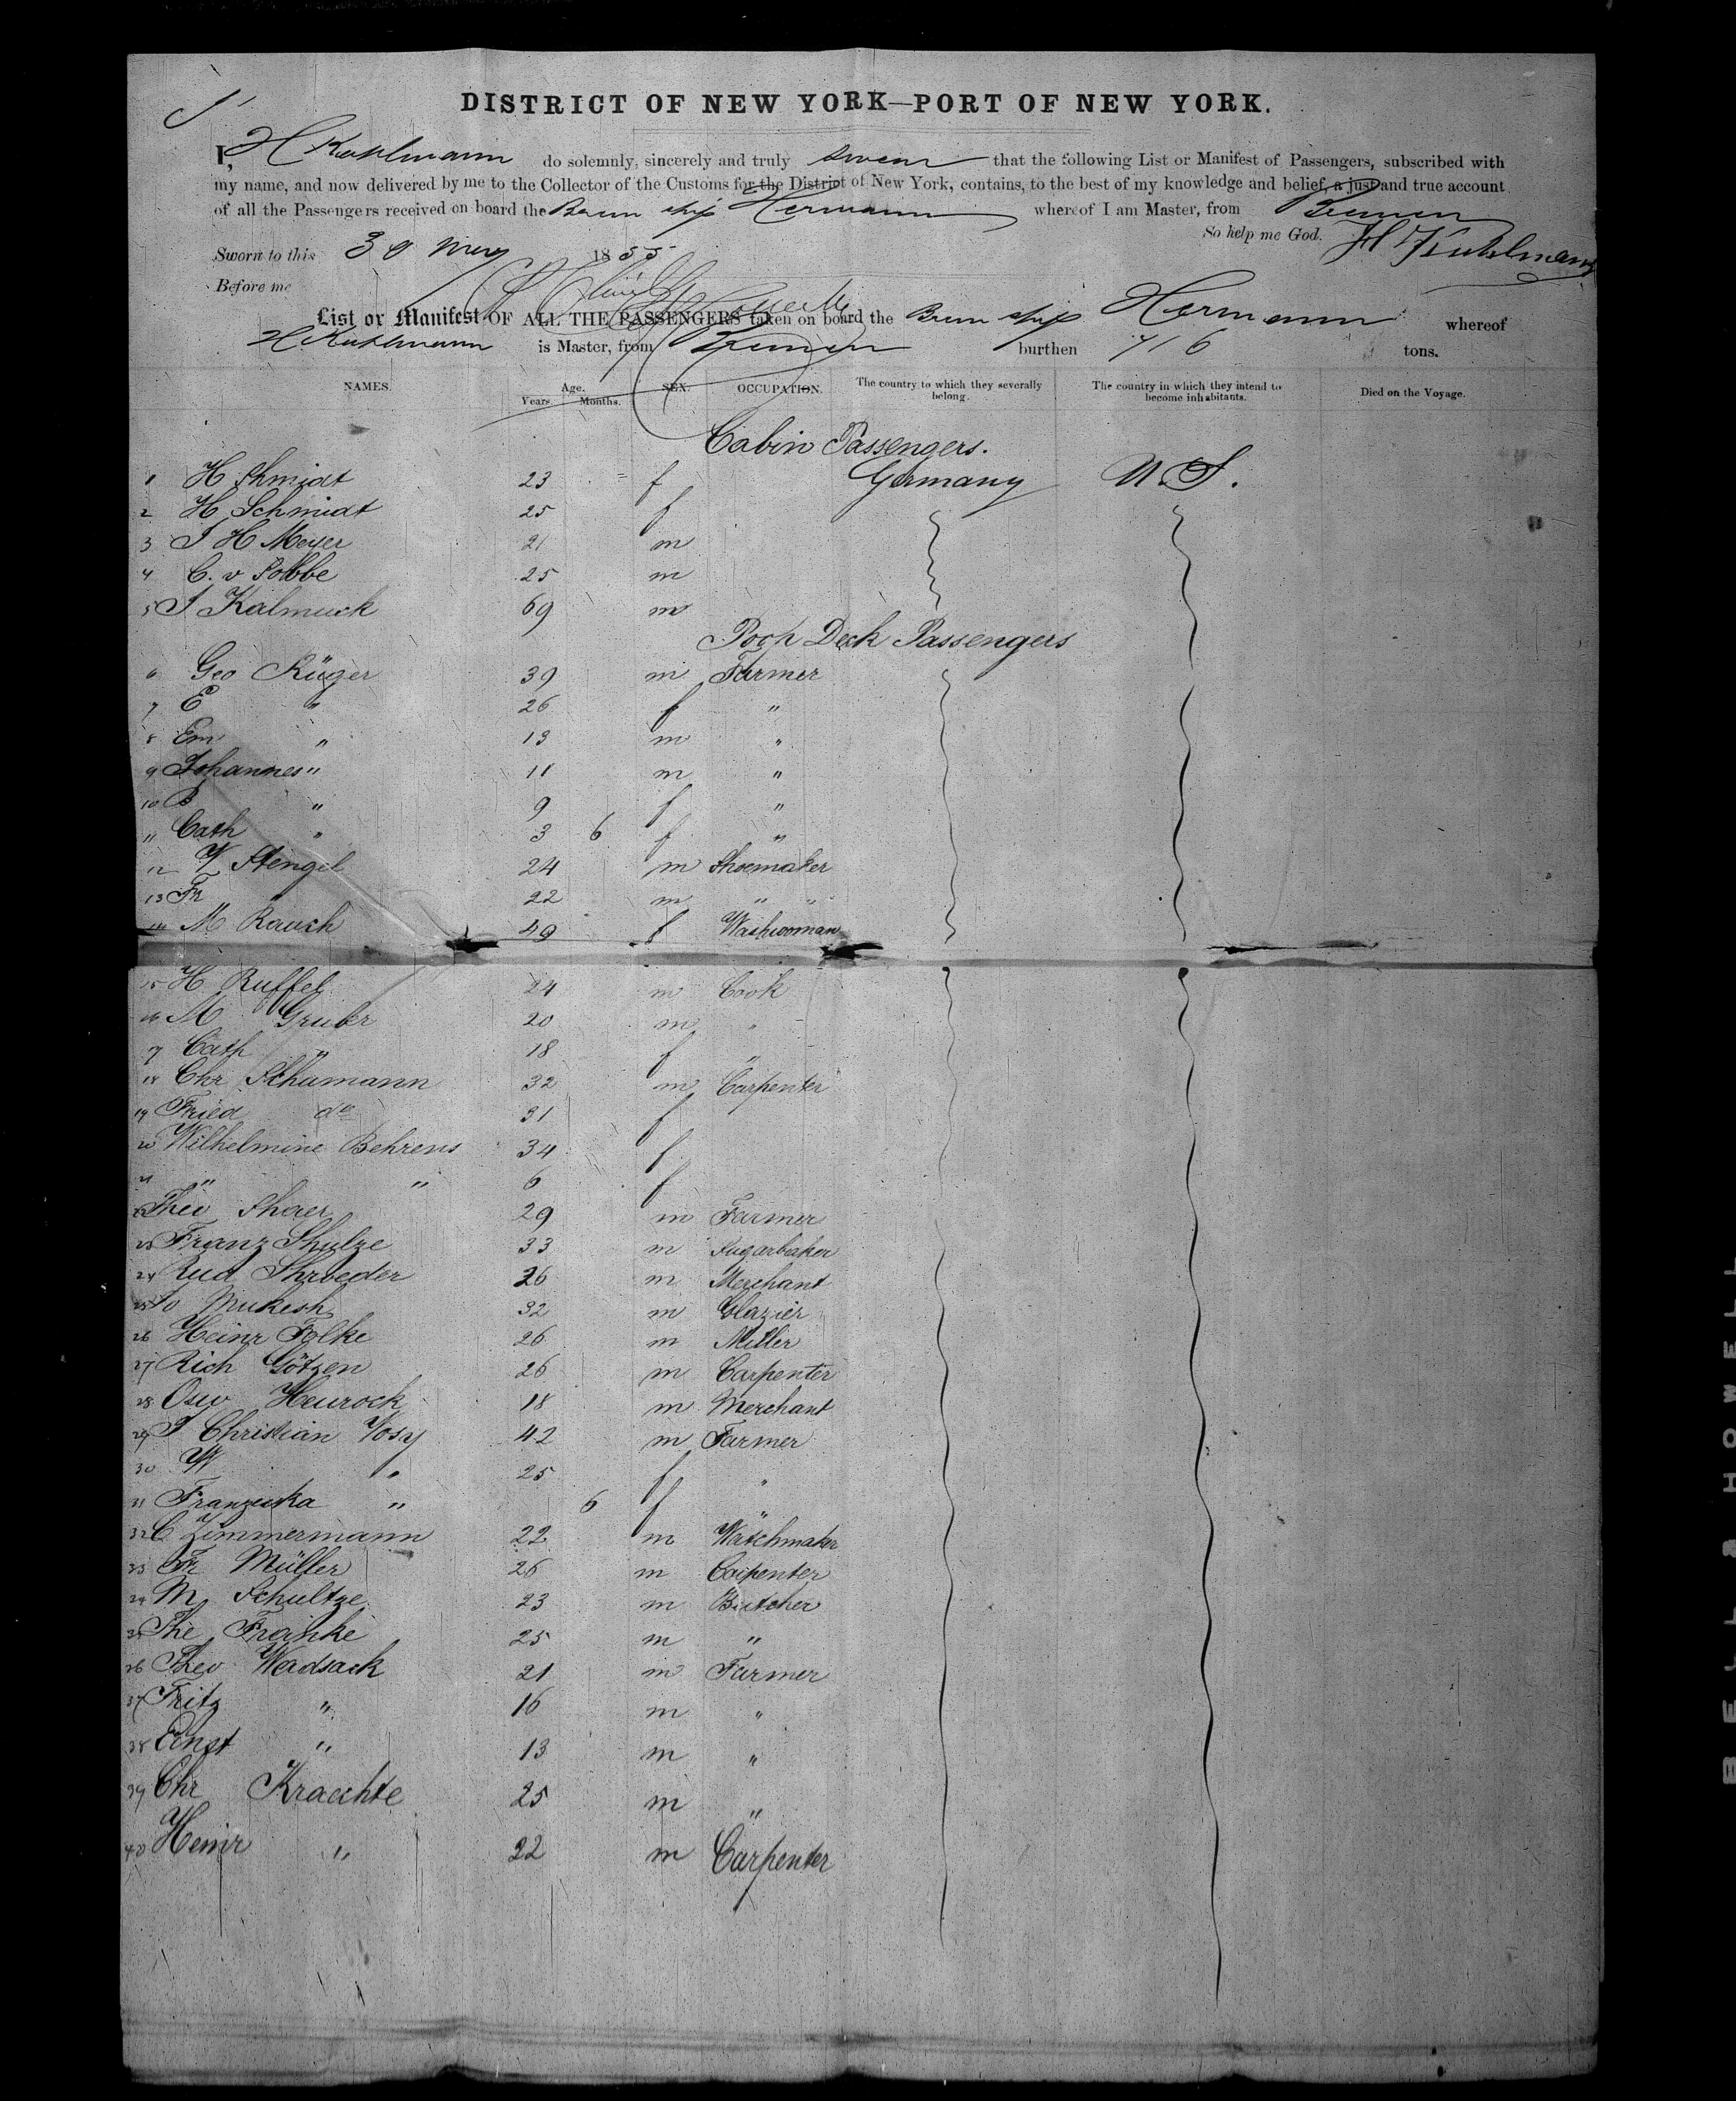 DISTRICT OF NEW YORK—PORT OF NEW YORK.
I, H Kuhlmann do solemnly, sincerely and truly swear that the following List or Manifest of Passengers, subscribed with
my name, and now delivered by me to the Collector of the Customs for the District of New York, contains, to the best of my knowledge and belief, a just and true account
of all the Passengers received on board the Brem ship Hermann whereof I am Master, from Bremen
So help me God. H Kuhlmann
Sworn to this 30 May 1855
Before me
List or Manifest OF ALL THE PASSENGERS taken on board the Brem ship Hermann whereof
H Kuhlmann is Master, from Bremen burthen 716 tons.
NAMES. Age. Years. Months. SEX. OCCUPATION. The country to which they severally belong. The country in which they intend to become inhabitants. Died on the Voyage.
Cabin Passengers.
1 H Shmidt 23 f Germany U.S.
2 H Schmidt 25 f
3 J H Meyer 21 m
4 C. v Sobbe 25 m
5 J Kalmuck 69 m
Poop Deck Passengers
6 Geo Rüger 39 m Farmer
7 E " 26 f "
8 Em " 13 m "
9 Johannes " 11 m "
10 B " 9 f "
11 Cath " 3 6 f "
12 W Stengel 24 m Shoemaker
13 Fr 22 m " "
14 M Rauch 49 f Washwoman
15 H Ruffel 24 m Cook
16 M Gruber 20 m "
17 Cath " 18 f "
18 Chr Schumann 32 m Carpenter
19 Fried do 31 f
20 Wilhelmine Behrens 34 f
21 " " 6 f
22 Theo Shaer 29 m Farmer
23 Franz Shulze 33 m Sugarbaker
24 Rud Shroeder 26 m Merchant
25 Jo Mukesh 32 m Glazier
26 Heinr Folke 26 m Miller
27 Rich Götzen 26 m Carpenter
28 Osw Heurock 18 m Merchant
29 J Christian Vosy 42 m Farmer
30 W " 25 f "
31 Franziska " 6 f "
32 C Zimmermann 22 m Watchmaker
33 Fr Müller 26 m Carpenter
34 M Schultze 23 m Butcher
35 The Franke 25 m "
36 Theo Wadsack 21 m Farmer
37 Fritz " 16 m "
38 Ernst " 13 m "
39 Chr Kraechte 25 m "
40 Heinr " 22 m Carpenter
BELL & HOWELL